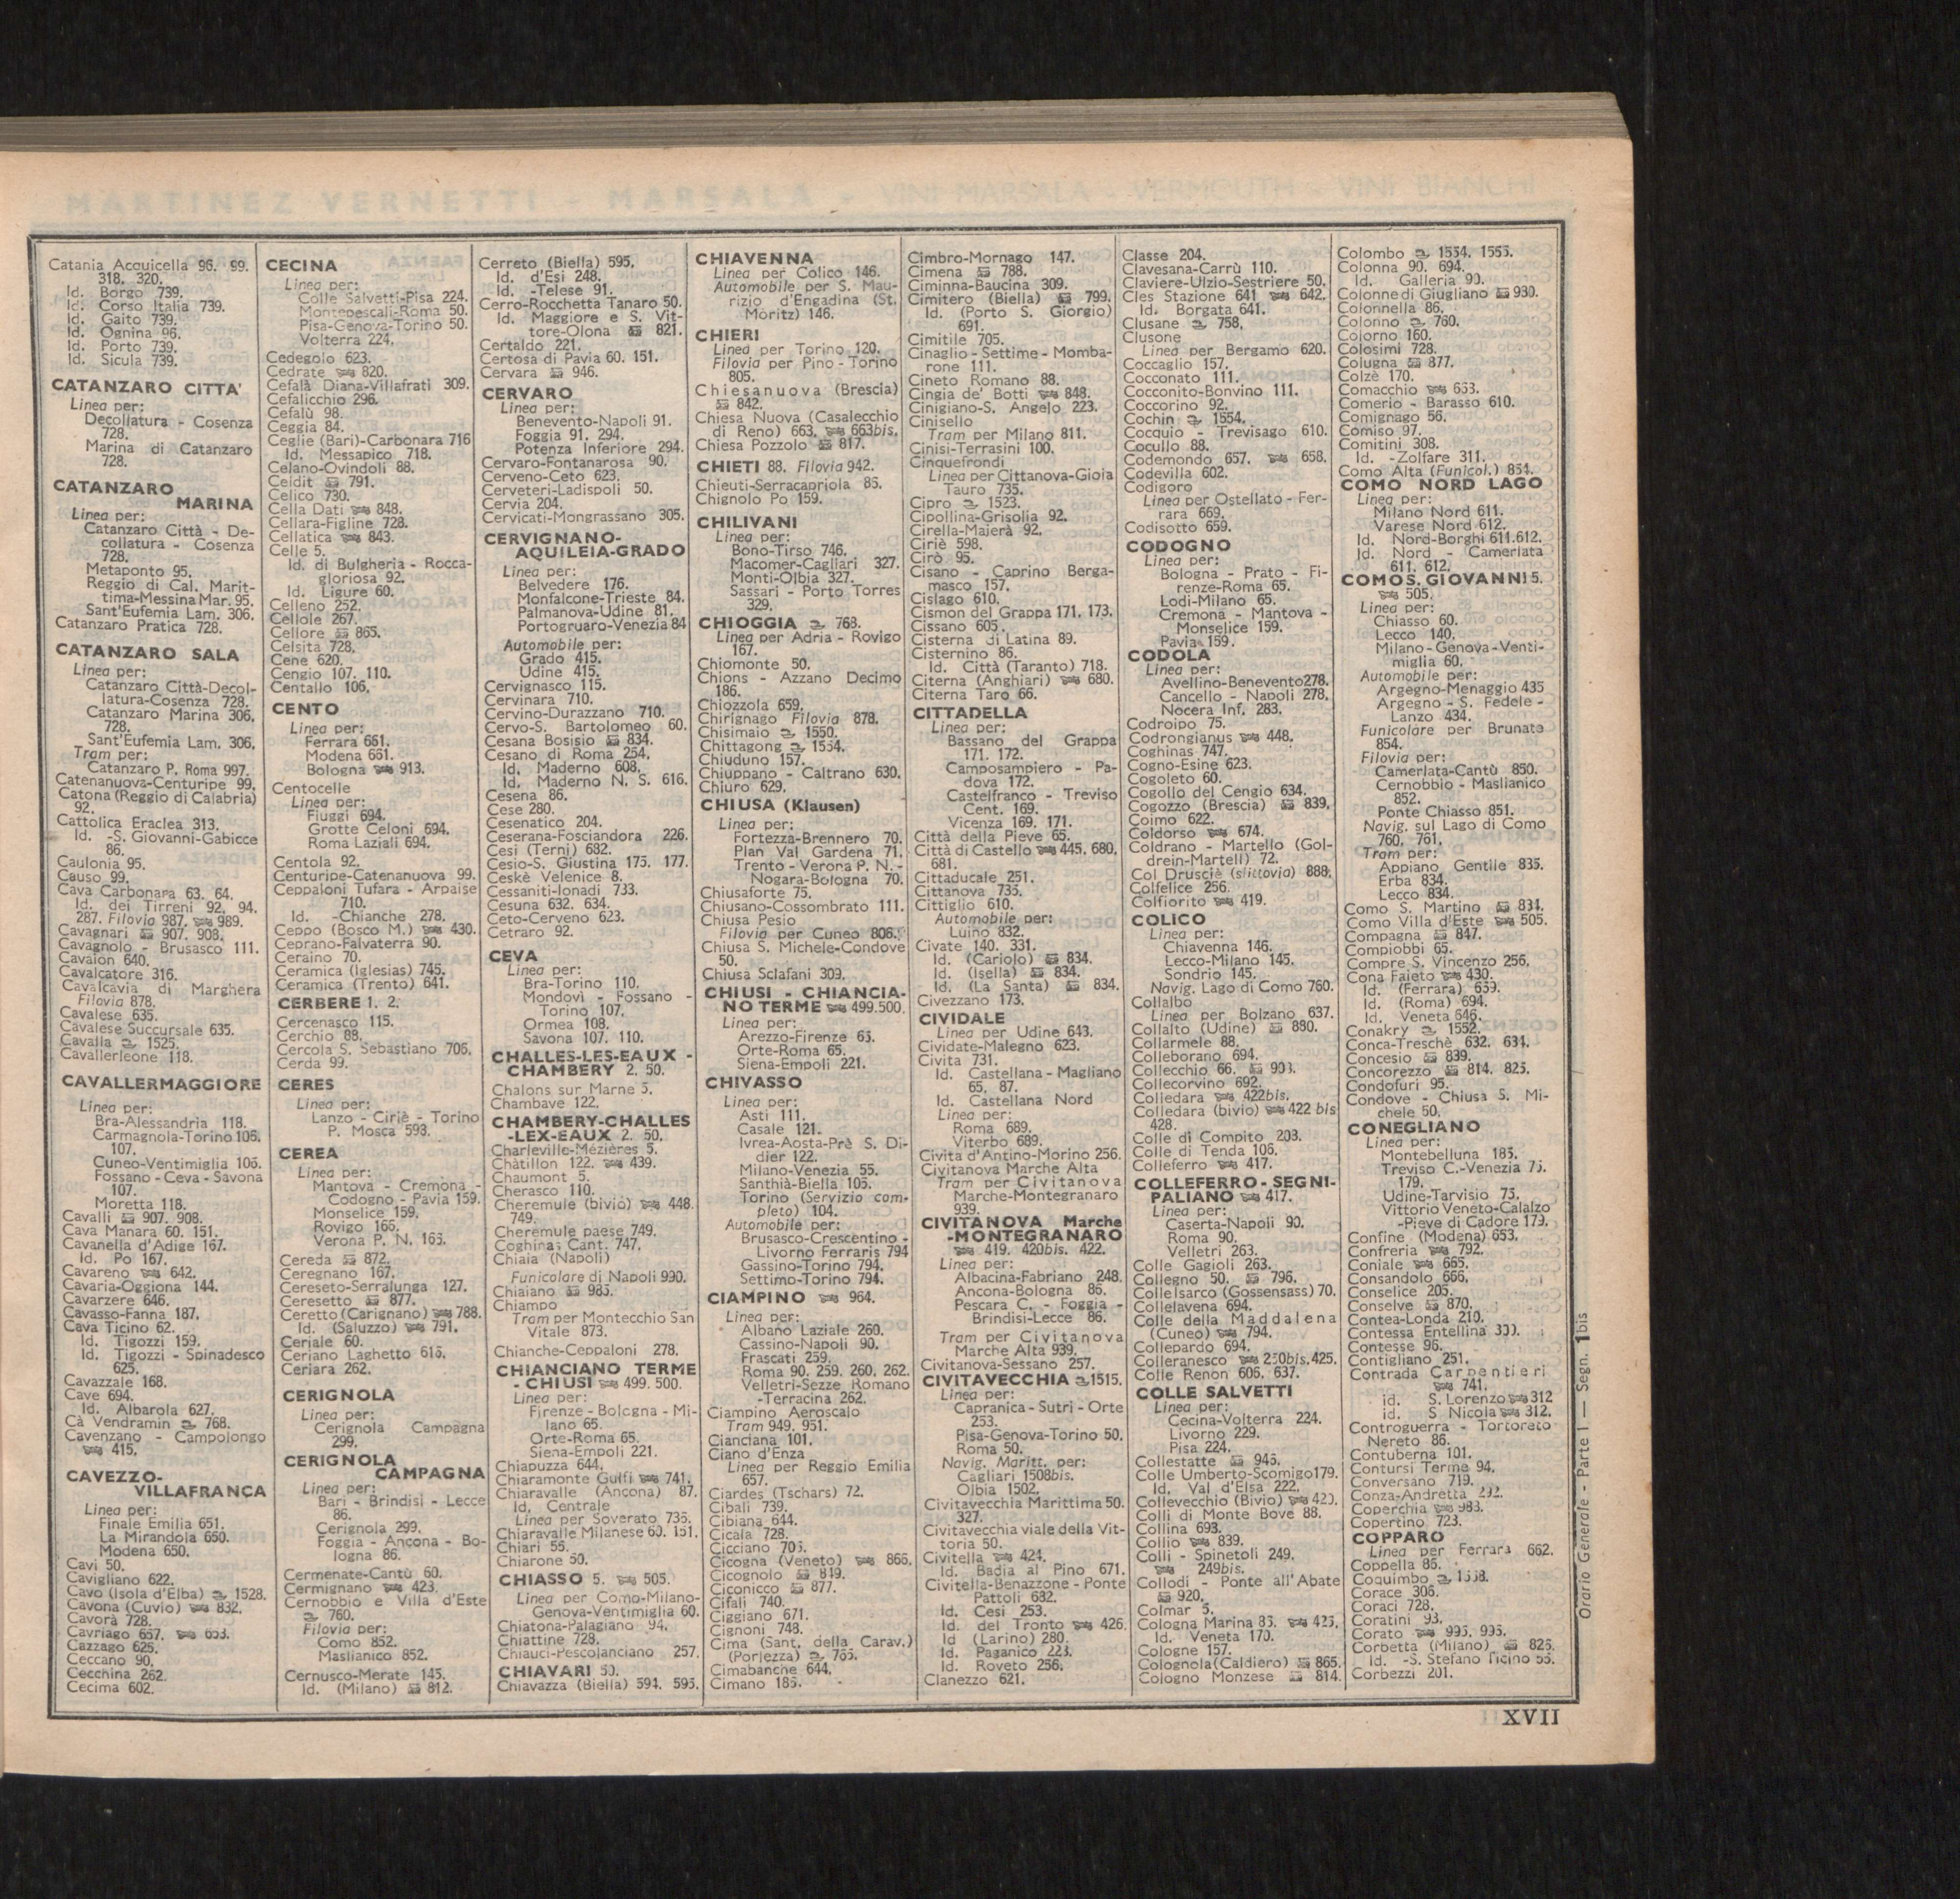 MARTINEZ VERNETTI - MARSALA - VINI MARSALA - VERMOUTH - VINI BIANCHI
Catania Acquicella 96. 99.
318. 320.
Id. Borgo 739.
Id. Corso Italia 739.
Id. Gaito 739.
Id. Ognina 96.
Id. Porto 739.
Id. Sicula 739.
CATANZARO CITTA'
Linea per:
Decollatura - Cosenza
728.
Marina di Catanzaro
728.
CATANZARO
MARINA
Linea per:
Catanzaro Città - De-
collatura - Cosenza
728.
Metaponto 95.
Reggio di Cal. Marit-
tima-Messina Mar. 95.
Sant'Eufemia Lam. 306.
Catanzaro Pratica 728.
CATANZARO SALA
Linea per:
Catanzaro Città-Decol-
latura-Cosenza 728.
Catanzaro Marina 306.
728.
Sant'Eufemia Lam. 306.
Tram per:
Catanzaro P. Roma 997.
Catenanuova-Centuripe 99.
Catona (Reggio di Calabria)
92.
Cattolica Eraclea 313.
Id. -S. Giovanni-Gabicce
86.
Caulonia 95.
Causo 99.
Cava Carbonara 63. 64.
Id. dei Tirreni 92. 94.
287. Filovia 987. 989.
Cavagnari 907. 908.
Cavagnolo - Brusasco 111.
Cavaion 640.
Cavalcatore 316.
Cavalcavia di Marghera
Filovia 878.
Cavalese 635.
Cavalese Succursale 635.
Cavalla 1525.
Cavallerleone 118.
CAVALLERMAGGIORE
Linea per:
Bra-Alessandria 118.
Carmagnola-Torino 106.
107.
Cuneo-Ventimiglia 106.
Fossano - Ceva - Savona
107.
Moretta 118.
Cavalli 907. 908.
Cava Manara 60. 151.
Cavanella d'Adige 167.
Id. Po 167.
Cavareno 642.
Cavaria-Oggiona 144.
Cavarzere 646.
Cavasso-Fanna 187.
Cava Ticino 62.
Id. Tigozzi 159.
Id. Tigozzi - Spinadesco
625.
Cavazzale 168.
Cave 694.
Id. Albarola 627.
Cà Vendramin 768.
Cavenzano - Campolongo
415.
CAVEZZO-
VILLAFRANCA
Linea per:
Finale Emilia 651.
La Mirandola 650.
Modena 650.
Cavi 50.
Cavigliano 622.
Cavo (Isola d'Elba) 1528.
Cavona (Cuvio) 832.
Cavorà 728.
Cavriago 657. 653.
Cazzago 625.
Ceccano 90.
Cecchina 262.
Cecima 602.
CECINA
Linea per:
Colle Salvetti-Pisa 224.
Montepescali-Roma 50.
Pisa-Genova-Torino 50.
Volterra 224.
Cedegolo 623.
Cedrate 820.
Cefalà Diana-Villafrati 309.
Cefalicchio 296.
Cefalù 98.
Ceggia 84.
Ceglie (Bari)-Carbonara 716
Id. Messapico 718.
Celano-Ovindoli 88.
Celdit 791.
Celico 730.
Cella Dati 848.
Cellara-Figline 728.
Cellatica 843.
Celle 5.
Id. di Bulgheria - Rocca-
gloriosa 92.
Id. Ligure 60.
Celleno 252.
Cellole 267.
Cellore 865.
Celsita 728.
Cene 620.
Cengio 107. 110.
Centallo 106.
CENTO
Linea per:
Ferrara 661.
Modena 661.
Bologna 913.
Centocelle
Linea per:
Fiuggi 694.
Grotte Celoni 694.
Roma Laziali 694.
Centola 92.
Centuripe-Catenanuova 99.
Ceppaloni Tufara - Arpaise
710.
Id. -Chianche 278.
Ceppo (Bosco M.) 430.
Ceprano-Falvaterra 90.
Ceraino 70.
Ceramica (Iglesias) 745.
Ceramica (Trento) 641.
CERBERE 1. 2.
Cercenasco 115.
Cerchio 88.
Cercola S. Sebastiano 706.
Cerda 99.
CERES
Linea per:
Lanzo - Ciriè - Torino
P. Mosca 598.
CEREA
Linea per:
Mantova - Cremona -
Codogno - Pavia 159.
Monselice 159.
Rovigo 165.
Verona P. N. 165.
Cereda 872.
Ceregnano 167.
Cereseto-Serralunga 127.
Ceresetto 877.
Ceretto (Carignano) 788.
Id. (Saluzzo) 791.
Ceriale 60.
Ceriano Laghetto 615.
Ceriara 262.
CERIGNOLA
Linea per:
Cerignola Campagna
299.
CERIGNOLA
CAMPAGNA
Linea per:
Bari - Brindisi - Lecce
86.
Cerignola 299.
Foggia - Ancona - Bo-
logna 86.
Cermenate-Cantù 60.
Cermignano 423.
Cernobbio e Villa d'Este
760.
Filovia per:
Como 852.
Maslianico 852.
Cernusco-Merate 145.
Id. (Milano) 812.
Cerreto (Biella) 595.
Id. d'Esi 248.
Id. -Telese 91.
Cerro-Rocchetta Tanaro 50.
Id. Maggiore e S. Vit-
tore-Olona 821.
Certaldo 221.
Certosa di Pavia 60. 151.
Cervara 946.
CERVARO
Linea per:
Benevento-Napoli 91.
Foggia 91. 294.
Potenza Inferiore 294.
Cervaro-Fontanarosa 90.
Cerveno-Ceto 623.
Cerveteri-Ladispoli 50.
Cervia 204.
Cervicati-Mongrassano 305.
CERVIGNANO-
AQUILEIA-GRADO
Linea per:
Belvedere 176.
Monfalcone-Trieste 84.
Palmanova-Udine 81.
Portogruaro-Venezia 84
Automobile per:
Grado 415.
Udine 415.
Cervignasco 115.
Cervinara 710.
Cervino-Durazzano 710.
Cervo-S. Bartolomeo 60.
Cesana Bosisio 834.
Cesano di Roma 254.
Id. Maderno 608.
Id. Maderno N. S. 616.
Cesena 86.
Cese 280.
Cesenatico 204.
Ceserana-Fosciandora 226.
Cesi (Terni) 682.
Cesio-S. Giustina 175. 177.
Ceskè Velenice 8.
Cessaniti-Ionadi 733.
Cesuna 632. 634.
Ceto-Cerveno 623.
Cetraro 92.
CEVA
Linea per:
Bra-Torino 110.
Mondovì - Fossano -
Torino 107.
Ormea 108.
Savona 107. 110.
CHALLES-LES-EAUX -
CHAMBERY 2. 50.
Chalons sur Marne 5.
Chambave 122.
CHAMBERY-CHALLES
-LEX-EAUX 2. 50.
Charleville-Mézières 5.
Châtillon 122. 439.
Chaumont 5.
Cherasco 110.
Cheremule (bivio) 448.
749.
Cheremule paese 749.
Coghinas Cant. 747.
Chiaia (Napoli)
Funicolare di Napoli 990.
Chiaiano 985.
Chiampo
Tram per Montecchio San
Vitale 873.
Chianche-Ceppaloni 278.
CHIANCIANO TERME
- CHIUSI 499. 500.
Linea per:
Firenze - Bologna - Mi-
lano 65.
Orte-Roma 65.
Siena-Empoli 221.
Chiapuzza 644.
Chiaramonte Gulfi 741.
Chiaravalle (Ancona) 87.
Id. Centrale
Linea per Soverato 736.
Chiaravalle Milanese 60. 151.
Chiari 55.
Chiarone 50.
CHIASSO 5. 505.
Linea per Como-Milano-
Genova-Ventimiglia 60.
Chiatona-Palagiano 94.
Chiattine 728.
Chiauci-Pescolanciano 257.
CHIAVARI 50.
Chiavazza (Biella) 594. 595.
CHIAVENNA
Linea per Colico 146.
Automobile per S. Mau-
rizio d'Engadina (St.
Moritz) 146.
CHIERI
Linea per Torino 120.
Filovia per Pino - Torino
805.
Chiesanuova (Brescia)
842.
Chiesa Nuova (Casalecchio
di Reno) 663. 663bis.
Chiesa Pozzolo 817.
CHIETI 88. Filovia 942.
Chieuti-Serracapriola 86.
Chignolo Po 159.
CHILIVANI
Linea per:
Bono-Tirso 746.
Macomer-Cagliari 327.
Monti-Olbia 327.
Sassari - Porto Torres
329.
CHIOGGIA 768.
Linea per Adria - Rovigo
167.
Chiomonte 50.
Chions - Azzano Decimo
186.
Chiozzola 659.
Chirignago Filovia 878.
Chisimaio 1550.
Chittagong 1554.
Chiuduno 157.
Chiuppano - Caltrano 630.
Chiuro 629.
CHIUSA (Klausen)
Linea per:
Fortezza-Brennero 70.
Plan Val Gardena 71.
Trento - Verona P. N. -
Nogara-Bologna 70.
Chiusaforte 75.
Chiusano-Cossombrato 111.
Chiusa Pesio
Filovia per Cuneo 806.
Chiusa S. Michele-Condove
50.
Chiusa Sclafani 309.
CHIUSI - CHIANCIA-
NO TERME 499.500.
Linea per:
Arezzo-Firenze 65.
Orte-Roma 65.
Siena-Empoli 221.
CHIVASSO
Linea per:
Asti 111.
Casale 121.
Ivrea-Aosta-Prè S. Di-
dier 122.
Milano-Venezia 55.
Santhià-Biella 105.
Torino (Servizio com-
pleto) 104.
Automobile per:
Brusasco-Crescentino -
Livorno Ferraris 794
Gassino-Torino 794.
Settimo-Torino 794.
CIAMPINO 964.
Linea per:
Albano Laziale 260.
Cassino-Napoli 90.
Frascati 259.
Roma 90. 259. 260. 262.
Velletri-Sezze Romano
-Terracina 262.
Ciampino Aeroscalo
Tram 949. 951.
Cianciana 101.
Ciano d'Enza
Linea per Reggio Emilia
657.
Ciardes (Tschars) 72.
Cibali 739.
Cibiana 644.
Cicala 728.
Cicciano 705.
Cicogna (Veneto) 866.
Cicognolo 849.
Ciconicco 877.
Cifali 740.
Ciggiano 671.
Cignoni 748.
Cima (Sant. della Carav.)
(Porlezza) 765.
Cimabanche 644.
Cimano 185.
Cimbro-Mornago 147.
Cimena 788.
Ciminna-Baucina 309.
Cimitero (Biella) 799.
Id. (Porto S. Giorgio)
691.
Cimitile 705.
Cinaglio - Settime - Momba-
rone 111.
Cineto Romano 88.
Cingia de' Botti 848.
Cinigiano-S. Angelo 223.
Cinisello
Tram per Milano 811.
Cinisi-Terrasini 100.
Cinquefrondi
Linea per Cittanova-Gioia
Tauro 735.
Cipro 1523.
Cipollina-Grisolia 92.
Cirella-Maierà 92.
Ciriè 598.
Cirò 95.
Cisano - Caprino Berga-
masco 157.
Cislago 610.
Cismon del Grappa 171. 173.
Cissano 605.
Cisterna di Latina 89.
Cisternino 86.
Id. Città (Taranto) 718.
Citerna (Anghiari) 680.
Citerna Taro 66.
CITTADELLA
Linea per:
Bassano del Grappa
171. 172.
Camposampiero - Pa-
dova 172.
Castelfranco - Treviso
Cent. 169.
Vicenza 169. 171.
Città della Pieve 65.
Città di Castello 445. 680.
681.
Cittaducale 251.
Cittanova 735.
Cittiglio 610.
Automobile per:
Luino 832.
Civate 140. 331.
Id. (Cariolo) 834.
Id. (Isella) 834.
Id. (La Santa) 834.
Civezzano 173.
CIVIDALE
Linea per Udine 643.
Cividate-Malegno 623.
Civita 731.
Id. Castellana - Magliano
65. 87.
Id. Castellana Nord
Linea per:
Roma 689.
Viterbo 689.
Civita d'Antino-Morino 256.
Civitanova Marche Alta
Tram per Civitanova
Marche-Montegranaro
939.
CIVITANOVA Marche
-MONTEGRANARO
419. 420bis. 422.
Linea per:
Albacina-Fabriano 248.
Ancona-Bologna 86.
Pescara C. - Foggia -
Brindisi-Lecce 86.
Tram per Civitanova
Marche Alta 939.
Civitanova-Sessano 257.
CIVITAVECCHIA 1515.
Linea per:
Capranica - Sutri - Orte
253.
Pisa-Genova-Torino 50.
Roma 50.
Navig. Maritt. per:
Cagliari 1508bis.
Olbia 1502.
Civitavecchia Marittima 50.
327.
Civitavecchia viale della Vit-
toria 50.
Civitella 424.
Id. Badia al Pino 671.
Civitella-Benazzone - Ponte
Pattoli 682.
Id. Cesi 253.
Id. del Tronto 426.
Id (Larino) 280.
Id. Paganico 223.
Id. Roveto 256.
Clanezzo 621.
Classe 204.
Clavesana-Carrù 110.
Claviere-Ulzio-Sestriere 50.
Cles Stazione 641 642.
Id. Borgata 641.
Clusane 758.
Clusone
Linea per Bergamo 620.
Coccaglio 157.
Cocconato 111.
Cocconito-Bonvino 111.
Coccorino 92.
Cochin 1554.
Cocquio - Trevisago 610.
Cocullo 88.
Codemondo 657. 658.
Codevilla 602.
Codigoro
Linea per Ostellato - Fer-
rara 669.
Codisotto 659.
CODOGNO
Linea per:
Bologna - Prato - Fi-
renze-Roma 65.
Lodi-Milano 65.
Cremona - Mantova -
Monselice 159.
Pavia 159.
CODOLA
Linea per:
Avellino-Benevento 278.
Cancello - Napoli 278.
Nocera Inf. 283.
Codroipo 75.
Codrongianus 448.
Coghinas 747.
Cogno-Esine 623.
Cogoleto 60.
Cogollo del Cengio 634.
Cogozzo (Brescia) 839.
Coimo 622.
Coldorso 674.
Coldrano - Martello (Gol-
drein-Martell) 72.
Col Drusciè (slittovia) 888.
Colfelice 256.
Colfiorito 419.
COLICO
Linea per:
Chiavenna 146.
Lecco-Milano 145.
Sondrio 145.
Navig. Lago di Como 760.
Collalbo
Linea per Bolzano 637.
Collalto (Udine) 880.
Collarmele 88.
Colleborano 694.
Collecchio 66. 903.
Collecorvino 692.
Colledara 422bis.
Colledara (bivio) 422 bis
428.
Colle di Compito 203.
Colle di Tenda 106.
Colleferro 417.
COLLEFERRO - SEGNI-
PALIANO 417.
Linea per:
Caserta-Napoli 90.
Roma 90.
Velletri 263.
Colle Gagioli 263.
Collegno 50. 796.
Collelsarco (Gossensass) 70.
Collelavena 694.
Colle della Maddalena
(Cuneo) 794.
Collepardo 694.
Colleranesco 250bis.425.
Colle Renon 606. 637.
COLLE SALVETTI
Linea per:
Cecina-Volterra 224.
Livorno 229.
Pisa 224.
Collestatte 945.
Colle Umberto-Scomigo 179.
Id. Val d'Elsa 222.
Collevecchio (Bivio) 420.
Colli di Monte Bove 88.
Collina 693.
Collio 839.
Colli - Spinetoli 249.
249bis.
Collodi - Ponte all'Abate
920.
Colmar 5.
Cologna Marina 86. 425.
Id. Veneta 170.
Cologne 157.
Colognola (Caldiero) 865.
Cologno Monzese 814.
Colombo 1554. 1555.
Colonna 90. 694.
Id. Galleria 90.
Colonne di Giugliano 930.
Colonnella 86.
Colonno 760.
Colorno 160.
Colosimi 728.
Colugna 877.
Colzè 170.
Comacchio 663.
Comerio - Barasso 610.
Comignago 56.
Comiso 97.
Comitini 308.
Id. -Zolfare 311.
Como Alta (Funicol.) 854.
COMO NORD LAGO
Linea per:
Milano Nord 611.
Varese Nord 612.
Id. Nord-Borghi 611.612.
Id. Nord - Camerlata
611. 612.
COMO S. GIOVANNI 5.
505.
Linea per:
Chiasso 60.
Lecco 140.
Milano-Genova-Venti-
miglia 60.
Automobile per:
Argegno-Menaggio 435
Argegno - S. Fedele -
Lanzo 434.
Funicolare per Brunate
854.
Filovia per:
Camerlata-Cantù 850.
Cernobbio - Maslianico
852.
Ponte Chiasso 851.
Navig. sul Lago di Como
760. 761.
Tram per:
Appiano Gentile 835.
Erba 834.
Lecco 834.
Como S. Martino 834.
Como Villa d'Este 505.
Compagna 847.
Compiobbi 65.
Compre S. Vincenzo 256.
Cona Faieto 430.
Id. (Ferrara) 639.
Id. (Roma) 694.
Id. Veneta 646.
Conakry 1552.
Conca-Treschè 632. 634.
Concesio 839.
Concorezzo 814. 825.
Condofuri 95.
Condove - Chiusa S. Mi-
chele 50.
CONEGLIANO
Linea per:
Montebelluna 185.
Treviso C.-Venezia 75.
179.
Udine-Tarvisio 75.
Vittorio Veneto-Calalzo
-Pieve di Cadore 179.
Confine (Modena) 653.
Confreria 792.
Coniale 665.
Consandolo 666.
Conselice 205.
Conselve 870.
Contea-Londa 210.
Contessa Entellina 309.
Contesse 96.
Contigliano 251.
Contrada Carpentieri
741.
id. S. Lorenzo 312
id. S Nicola 312.
Controguerra - Tortoreto
Nereto 86.
Contuberna 101.
Contursi Terme 94.
Conversano 719.
Conza-Andretta 292.
Coperchia 983.
Copertino 723.
COPPARO
Linea per Ferrara 662.
Coppella 86.
Coquimbo 1558.
Corace 306.
Coraci 728.
Coratini 93.
Corato 995. 996.
Corbetta (Milano) 826.
Id. -S. Stefano Ticino 55.
Corbezzi 201.
Orario Generale - Parte I — Segn. 1bis
XVII